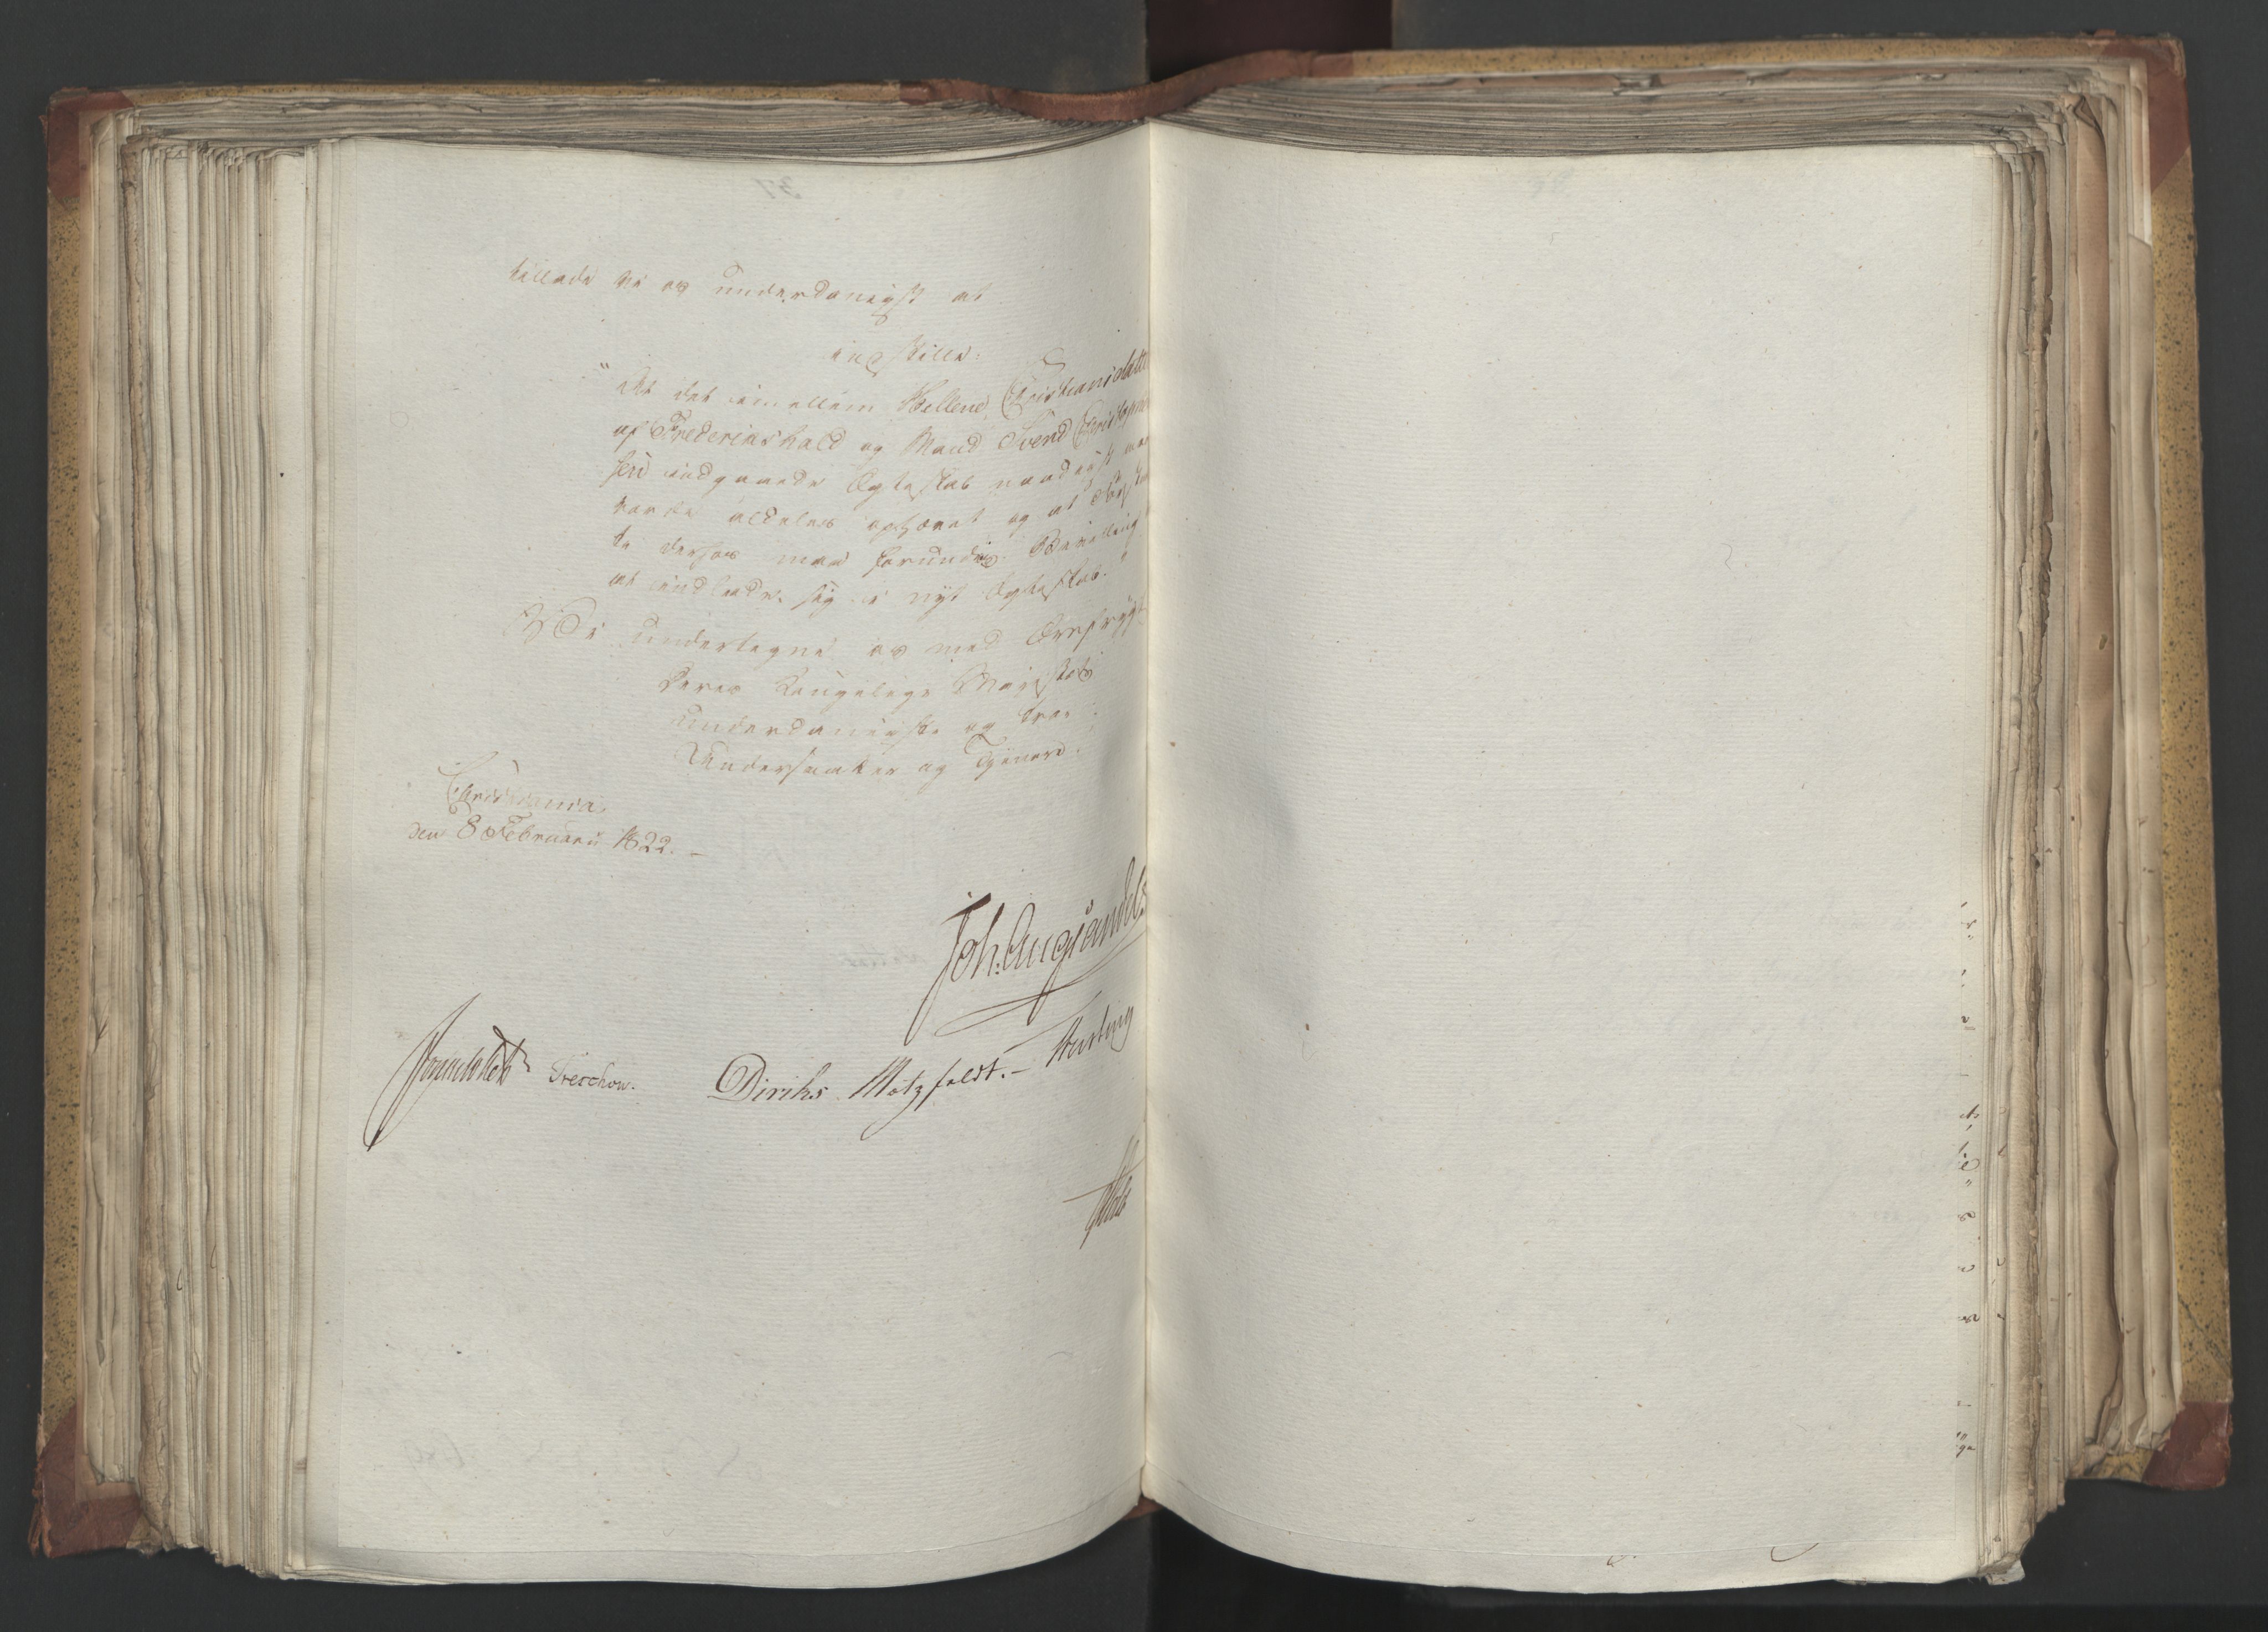 tillade vi os underdanigst at
indstille:
"At det imellem Hellene Christiansdatter
af Fredrikshald og Mand Svend Christopher
sen indgaaede Egteskab naadigst maa
vorde aldeles ophævet og at Først
te derhos maa forundes Bevilling
at indlade sig i nyt Egteskab."
Vi undertegne os med Ærefrygt
Deres Kongelige Majestæts
underdanigste og troe
Undersaatter og Tjenere.
Christiania,
den 8 Februarii 1822. –
Joh: Aug: Sandels
Sommerhielm Treschow. Diriks. Motzfeldt. – Krebting
Holst